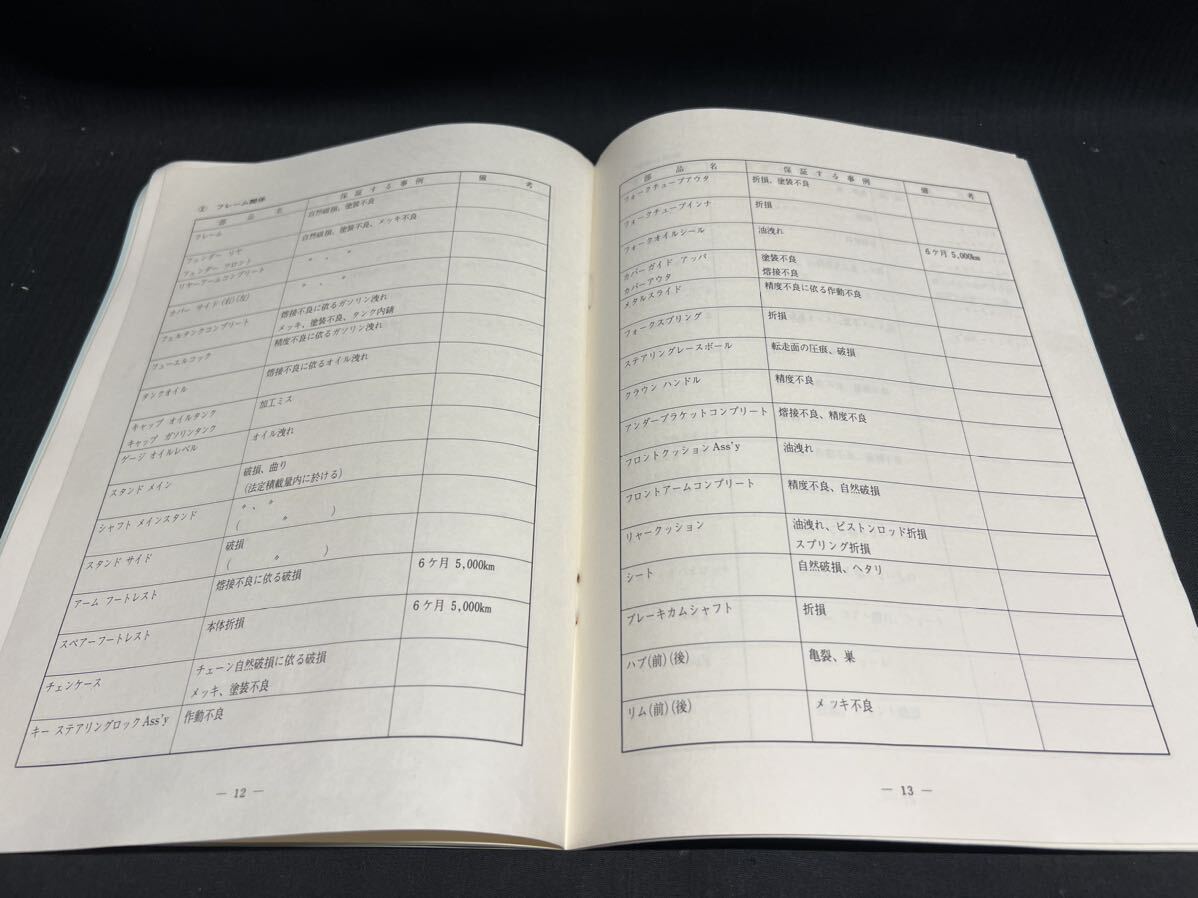 ② フレーム関係
部 品 名 保 証 す る 事 例 備 考
フレーム 自然破損、塗装不良
フェンダー リヤ 自然破損、塗装不良、メッキ不良
フェンダー フロント
リヤーアームコンプリート 〃 、 〃
カバー サイド(右)(左) 〃 、 〃
フェルタンクコンプリート 熔接不良に依るガソリン洩れ
メッキ、塗装不良、タンク内錆
フューエルコック 精度不良に依るガソリン洩れ
タンクオイル 熔接不良に依るオイル洩れ
キャップ オイルタンク 加工ミス
キャップ ガソリンタンク
ゲージ オイルレベル オイル洩れ
スタンド メイン 破損、曲り
(法定積載量内に於ける)
シャフト メインスタンド 〃 、 〃
( 〃 )
スタンド サイド 破損
( 〃 )
アーム フートレスト 熔接不良に依る破損 6ケ月 5,000km
スペアーフートレスト 本体折損 6ケ月 5,000km
チェンケース チェーン自然破損に依る破損
メッキ、塗装不良
キー ステアリングロック Ass'y 作動不良
— 12 —
部 品 名 保 証 す る 事 例 備 考
フォークチューブアウタ 折損、塗装不良
フォークチューブインナ 折損
フォークオイルシール 油洩れ 6ケ月 5,000km
カバーガイド アッパ 塗装不良
カバーアウタ 熔接不良
メタルスライド 精度不良に依る作動不良
フォークスプリング 折損
ステアリングレースボール 転走面の圧痕、破損
クラウン ハンドル 精度不良
アンダーブラケットコンプリート 熔接不良、精度不良
フロントクッションAss'y 油洩れ
フロントアームコンプリート 精度不良、自然破損
リャークッション 油洩れ、ピストンロッド折損
スプリング折損
シート 自然破損、ヘタリ
ブレーキカムシャフト 折損
ハブ(前)(後) 亀裂、巣
リム(前)(後) メッキ不良
— 13 —